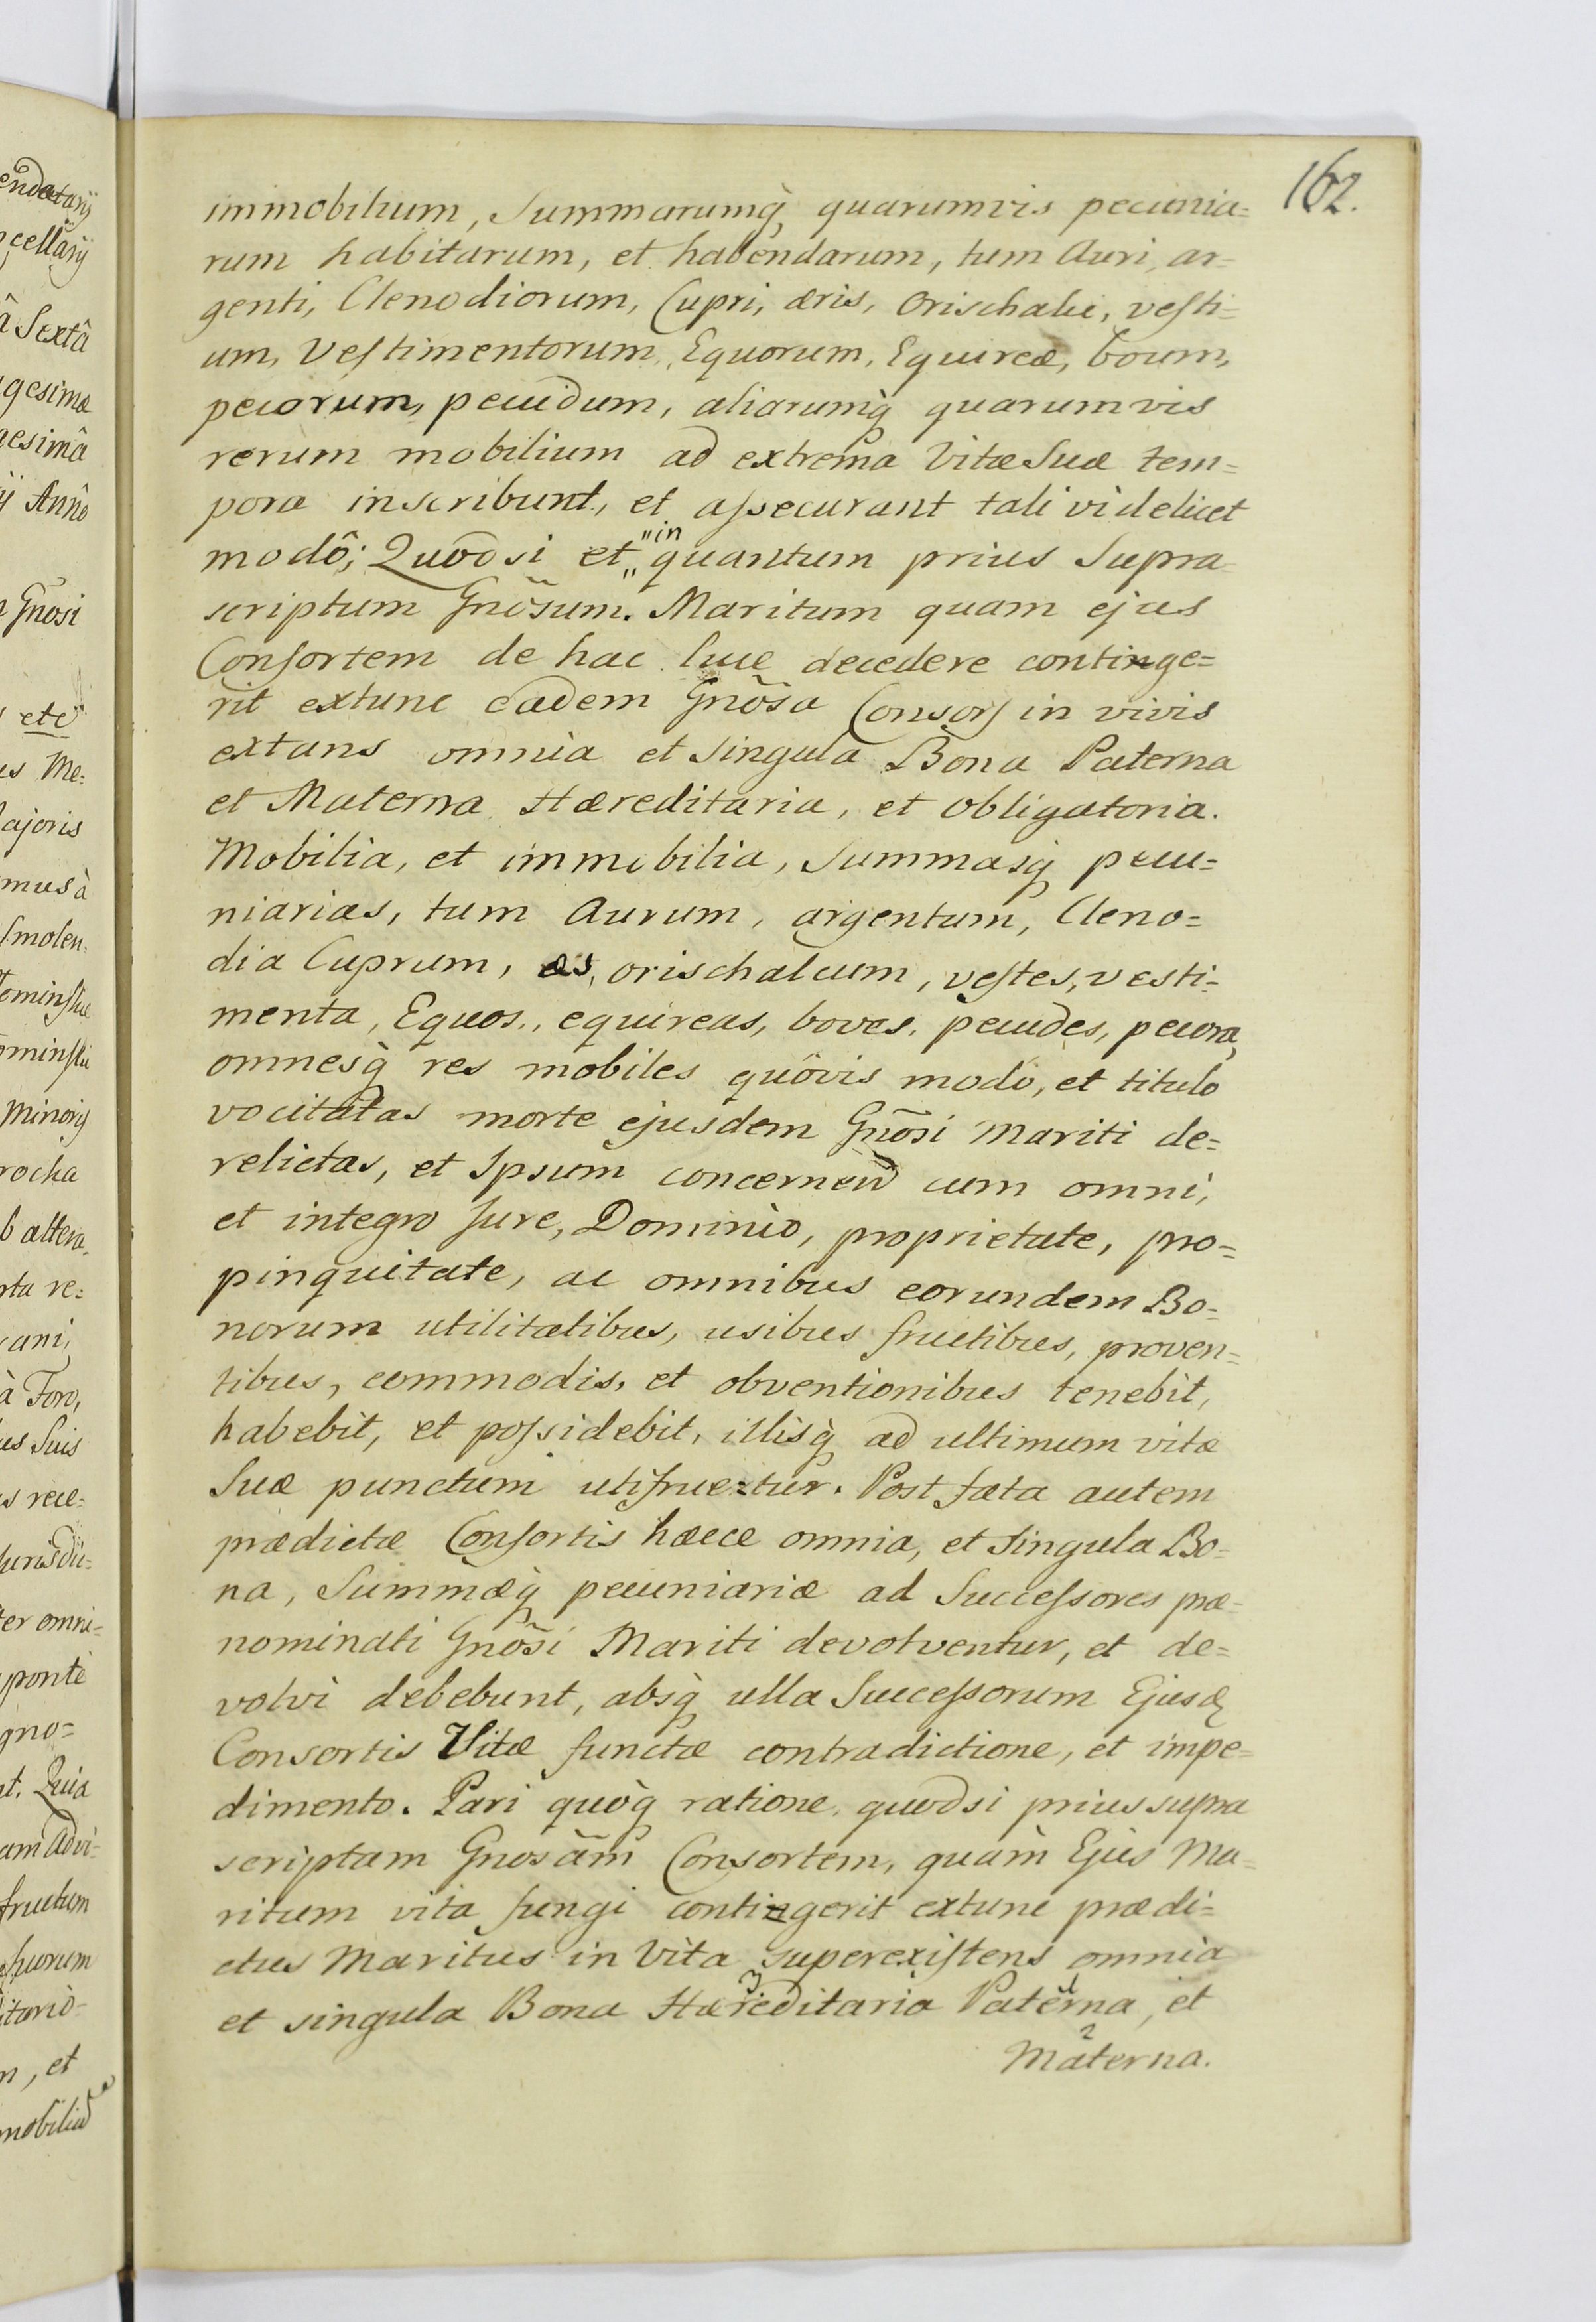 162.
immobilium, Summarumq̀ quarumvis pecunia=
rum habitarum, et habendarum, tum Auri, ar=
genti, Clenodiorum, Cupri, æris, Orischalci, vesti=
um, Vestimentorum, Equorum, Equireæ, boum,
pecorum, pecudum, aliarumq̀ quarumvis
rerum mobilium ad extrema Vitæ Suæ tem=
pora inscribunt, et assecurant tali videlicet
modô; Quodsi et "in" quantum prius Supra
scriptum Gnõsum. Maritum quam ejus
Consortem de hac luce decedere continge=
rit extunc eadem Gnõsa Consors in vivis
extans omnia et singula Bona Paterna
et Materna Hæreditaria, et obligatoria.
Mobilia, et immobilia, Summasq̀ pecu=
niarias, tum Aurum, argentum, Cleno=
dia Cuprum, æs, orischalcum, vestes, vesti=
menta, Equos, equireas, boves, pecudes, pecora,
omnesq̀ res mobiles quôvis modo, et titulo
vocitatas morte ejusdem Gnõsi Mariti de=
relictas, et Ipsum concernen̄ cum omni,
et integro Jure, Dominio, proprietate, pro=
pinquitate, ac omnibus eorundem Bo=
norum utilitatibus, usibus fructibus, proven=
tibus, commodis, et obventionibus tenebit,
habebit, et possidebit, illisq̀ ad ultimum vitæ
Suæ punctum utifrue=tur. Post fata autem
prædictæ Consortis hæcce omnia, et singula Bo=
na, Summæq̀ pecuniariæ ad Successores præ=
nominati Gnõsi Mariti devolventur, et de=
volvi debebunt, absq̀ ulla Successorum Ejusd
Consortis Vitæ functæ contradictione, et impe=
dimento. Pari quòq̀ ratione, quodsi prius supra
scriptam Gnosãm Consortem, quàm Ejus Ma=
ritum vita fungi contingerit extunc prædi=
ctus Maritus in Vita superexistens omnia
et singula Bona Hæreditaria Paterna, et
Materna.